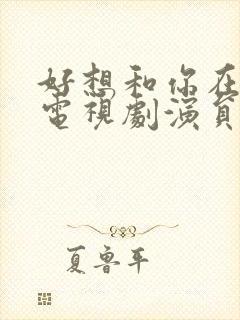 好想和你在
電視劇演員
夏鲁平